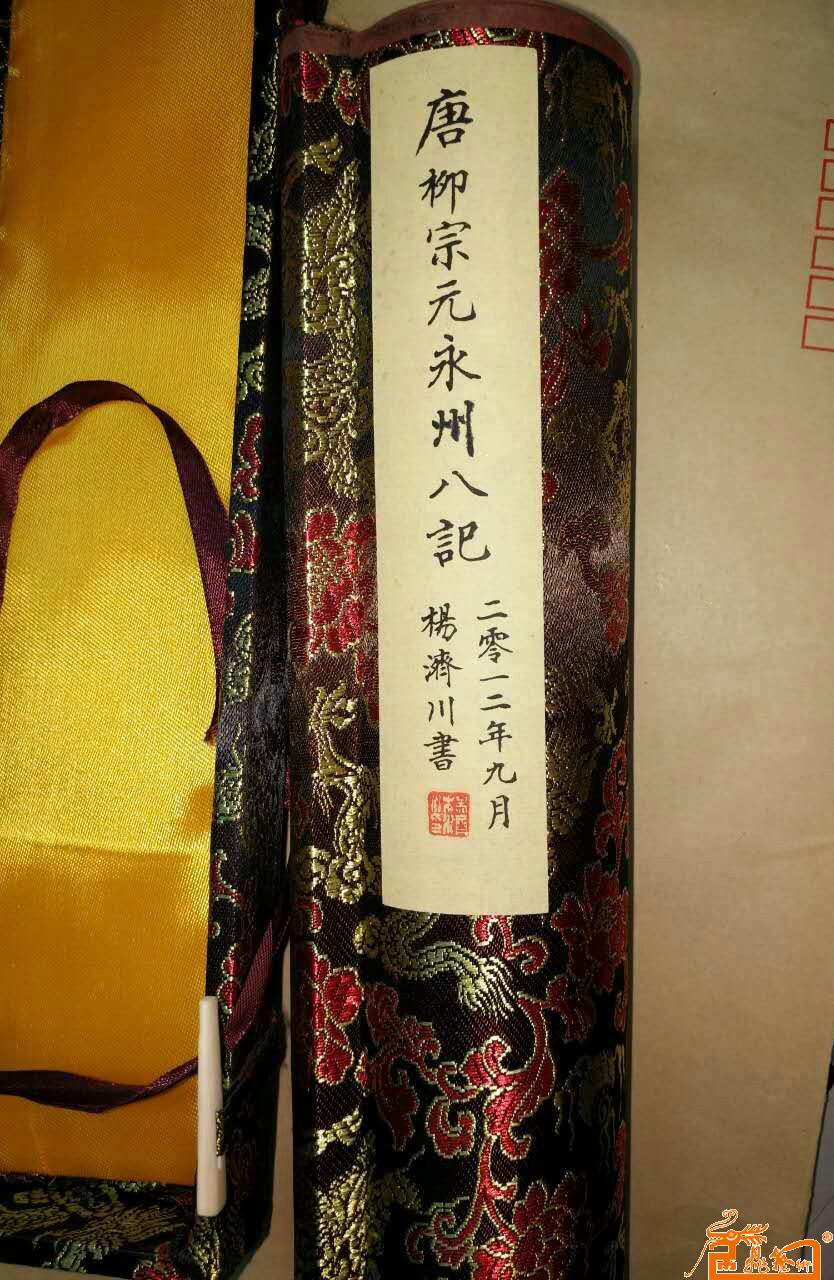 唐柳宗元永州八記
二零一二年九月
楊濟川書